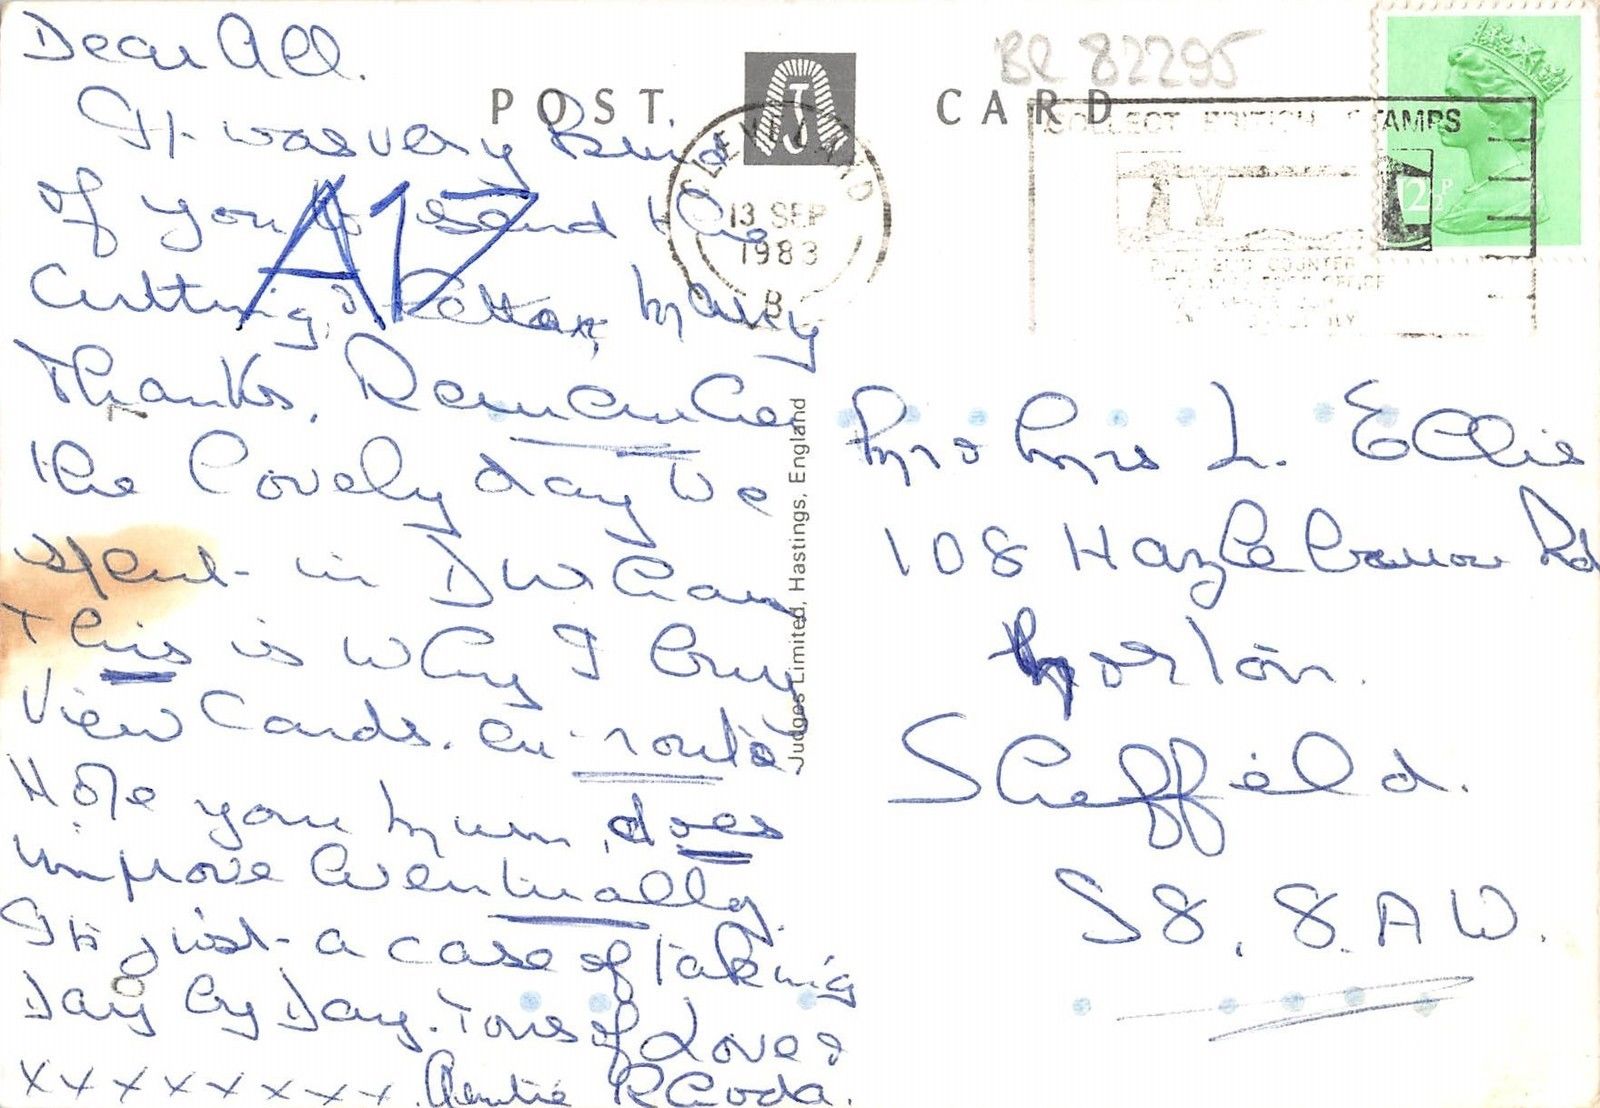 Dear All.
It was very kind
of you to send the
Cutting, & Letter, Many
Thanks. Remember
the lovely day we
spent in Durham
This is why I buy
View Cards. en-route
Hope your Mum, does
improve eventually.
Its just a case of taking
Day by Day. Tons of Love &
xxxxxxxxx Auntie Rhoda.
A17
POST CARD
BR 82295
CLEVELAND
13 SEP
1983
B
COLLECT BRITISH STAMPS
COUNTER
12½P
Judges Limited, Hastings, England
Mr & Mrs L. Ellis
108 Hazlebarrow Rd
Norton.
Sheffield.
S8. 8.A W.